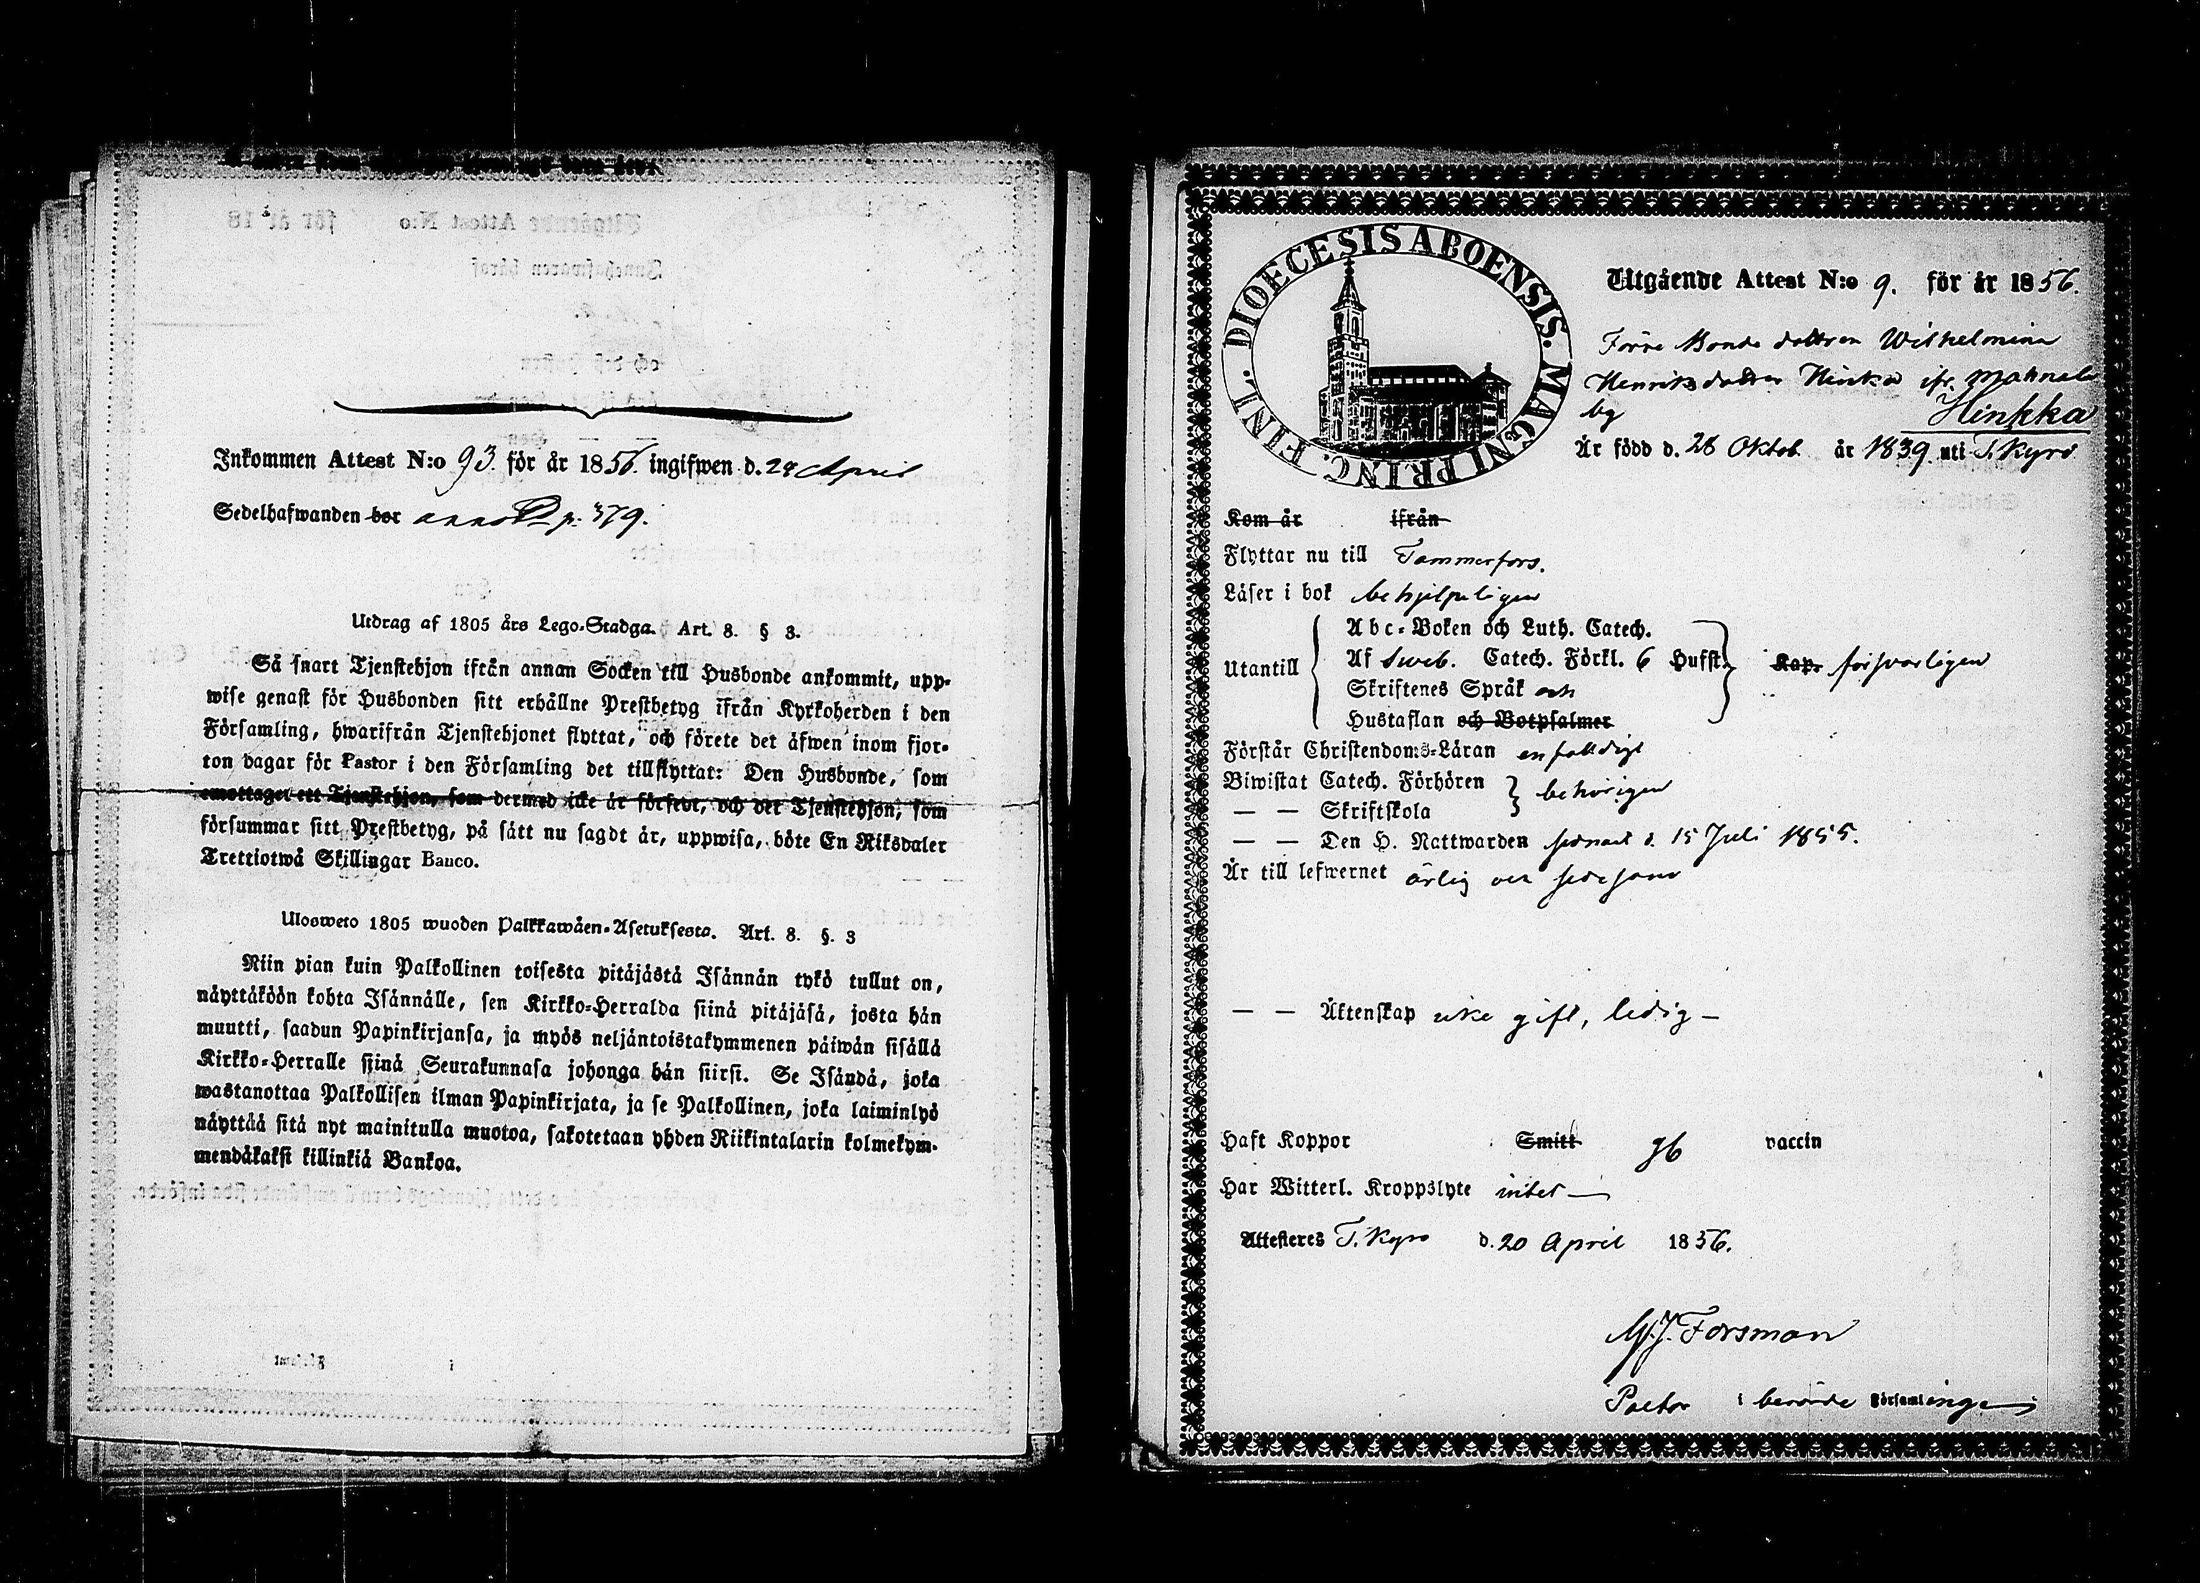 Inkommen Attest N:o 93. för år 1856 ingifwen d. 24 April
Sedelhafwanden bor anno p. 379.
Utdrag af 1805 års Lego-Stadga. Art. 8. § 3.
Så snart Tjenstehjon ifrån annan Socken till Husbonde ankommit, upp-
wise genast för Husbonden sitt erhållne Prestbetyg ifrån Kyrkoherden i den
Församling, hwarifrån Tjenstehjonet flyttat, och förete det äfwen inom fjor-
ton dagar för Pastor i den Församling det tillflyttat: Den Husbonde, som
emottaget ett Tjenstehjon, som dermed icke är försedt, och det Tjenstehjon, som
försummar sitt Prestbetyg, på sätt nu sagdt är, uppwisa, böte En Riksdaler
Trettiotwå Skillingar Banco.
Ulosweto 1805 wuoden Palkkawäen-Asetuksesta. Art. 8. §. 3
Niin pian kuin Palkollinen toisesta pitäjästä Isännän tykö tullut on,
näyttäköön kohta Isännälle, sen Kirkko-Herralda siinä pitäjäsä, josta hän
muutti, saadun Papinkirjansa, ja myös neljäntoistakymmenen päiwän sisällä
Kirkko-Herralle siinä Seurakunnasa johonga hän siirsi. Se Isändä, joka
wastanottaa Palkollisen ilman Papinkirjata, ja se Palkollinen, joka laiminlyö
näyttää sitä nyt mainitulla muotoa, sakotetaan yhden Riikintalarin kolmekym-
mendäkaksi killinkiä Bankoa.
DIOECESIS ABOENSIS. MAGNI PRINC. FINL.
Utgående Attest N:o 9. för år 1856.
Förre Bonde dottren Wilhelmina
Henriksdotter Hinka ifr. Mahnala
by Hinkka
Är född d. 28 Oktob. år 1839 uti T. Kyro
Kom år ifrån
Flyttar nu till Tammerfors.
Läser i bok behjelpeligen
Abc-Boken och Luth. Catech.
Utantill Af Sweb. Catech. Förkl. 6 Hufst. Kap. försvarligen
Skriftenes Språk och
Hustaflan och Botpsalmer
Förstår Christendoms-Läran enfaldigt
Biwistat Catech. Förhören behörigen
— — Skriftskola
— — Den H. Nattwarden sednast d. 15 Juli 1855.
Är till lefwernet ärlig och sedesam
— — Äktenskap icke gift, ledig —
Haft Koppor Smitt gb vaccin
Har Witterl. Kroppslyte intet —
Attesteres T. Kyro d. 20 April 1856.
M. J. Forsman
Pastor i berörde Församlingen